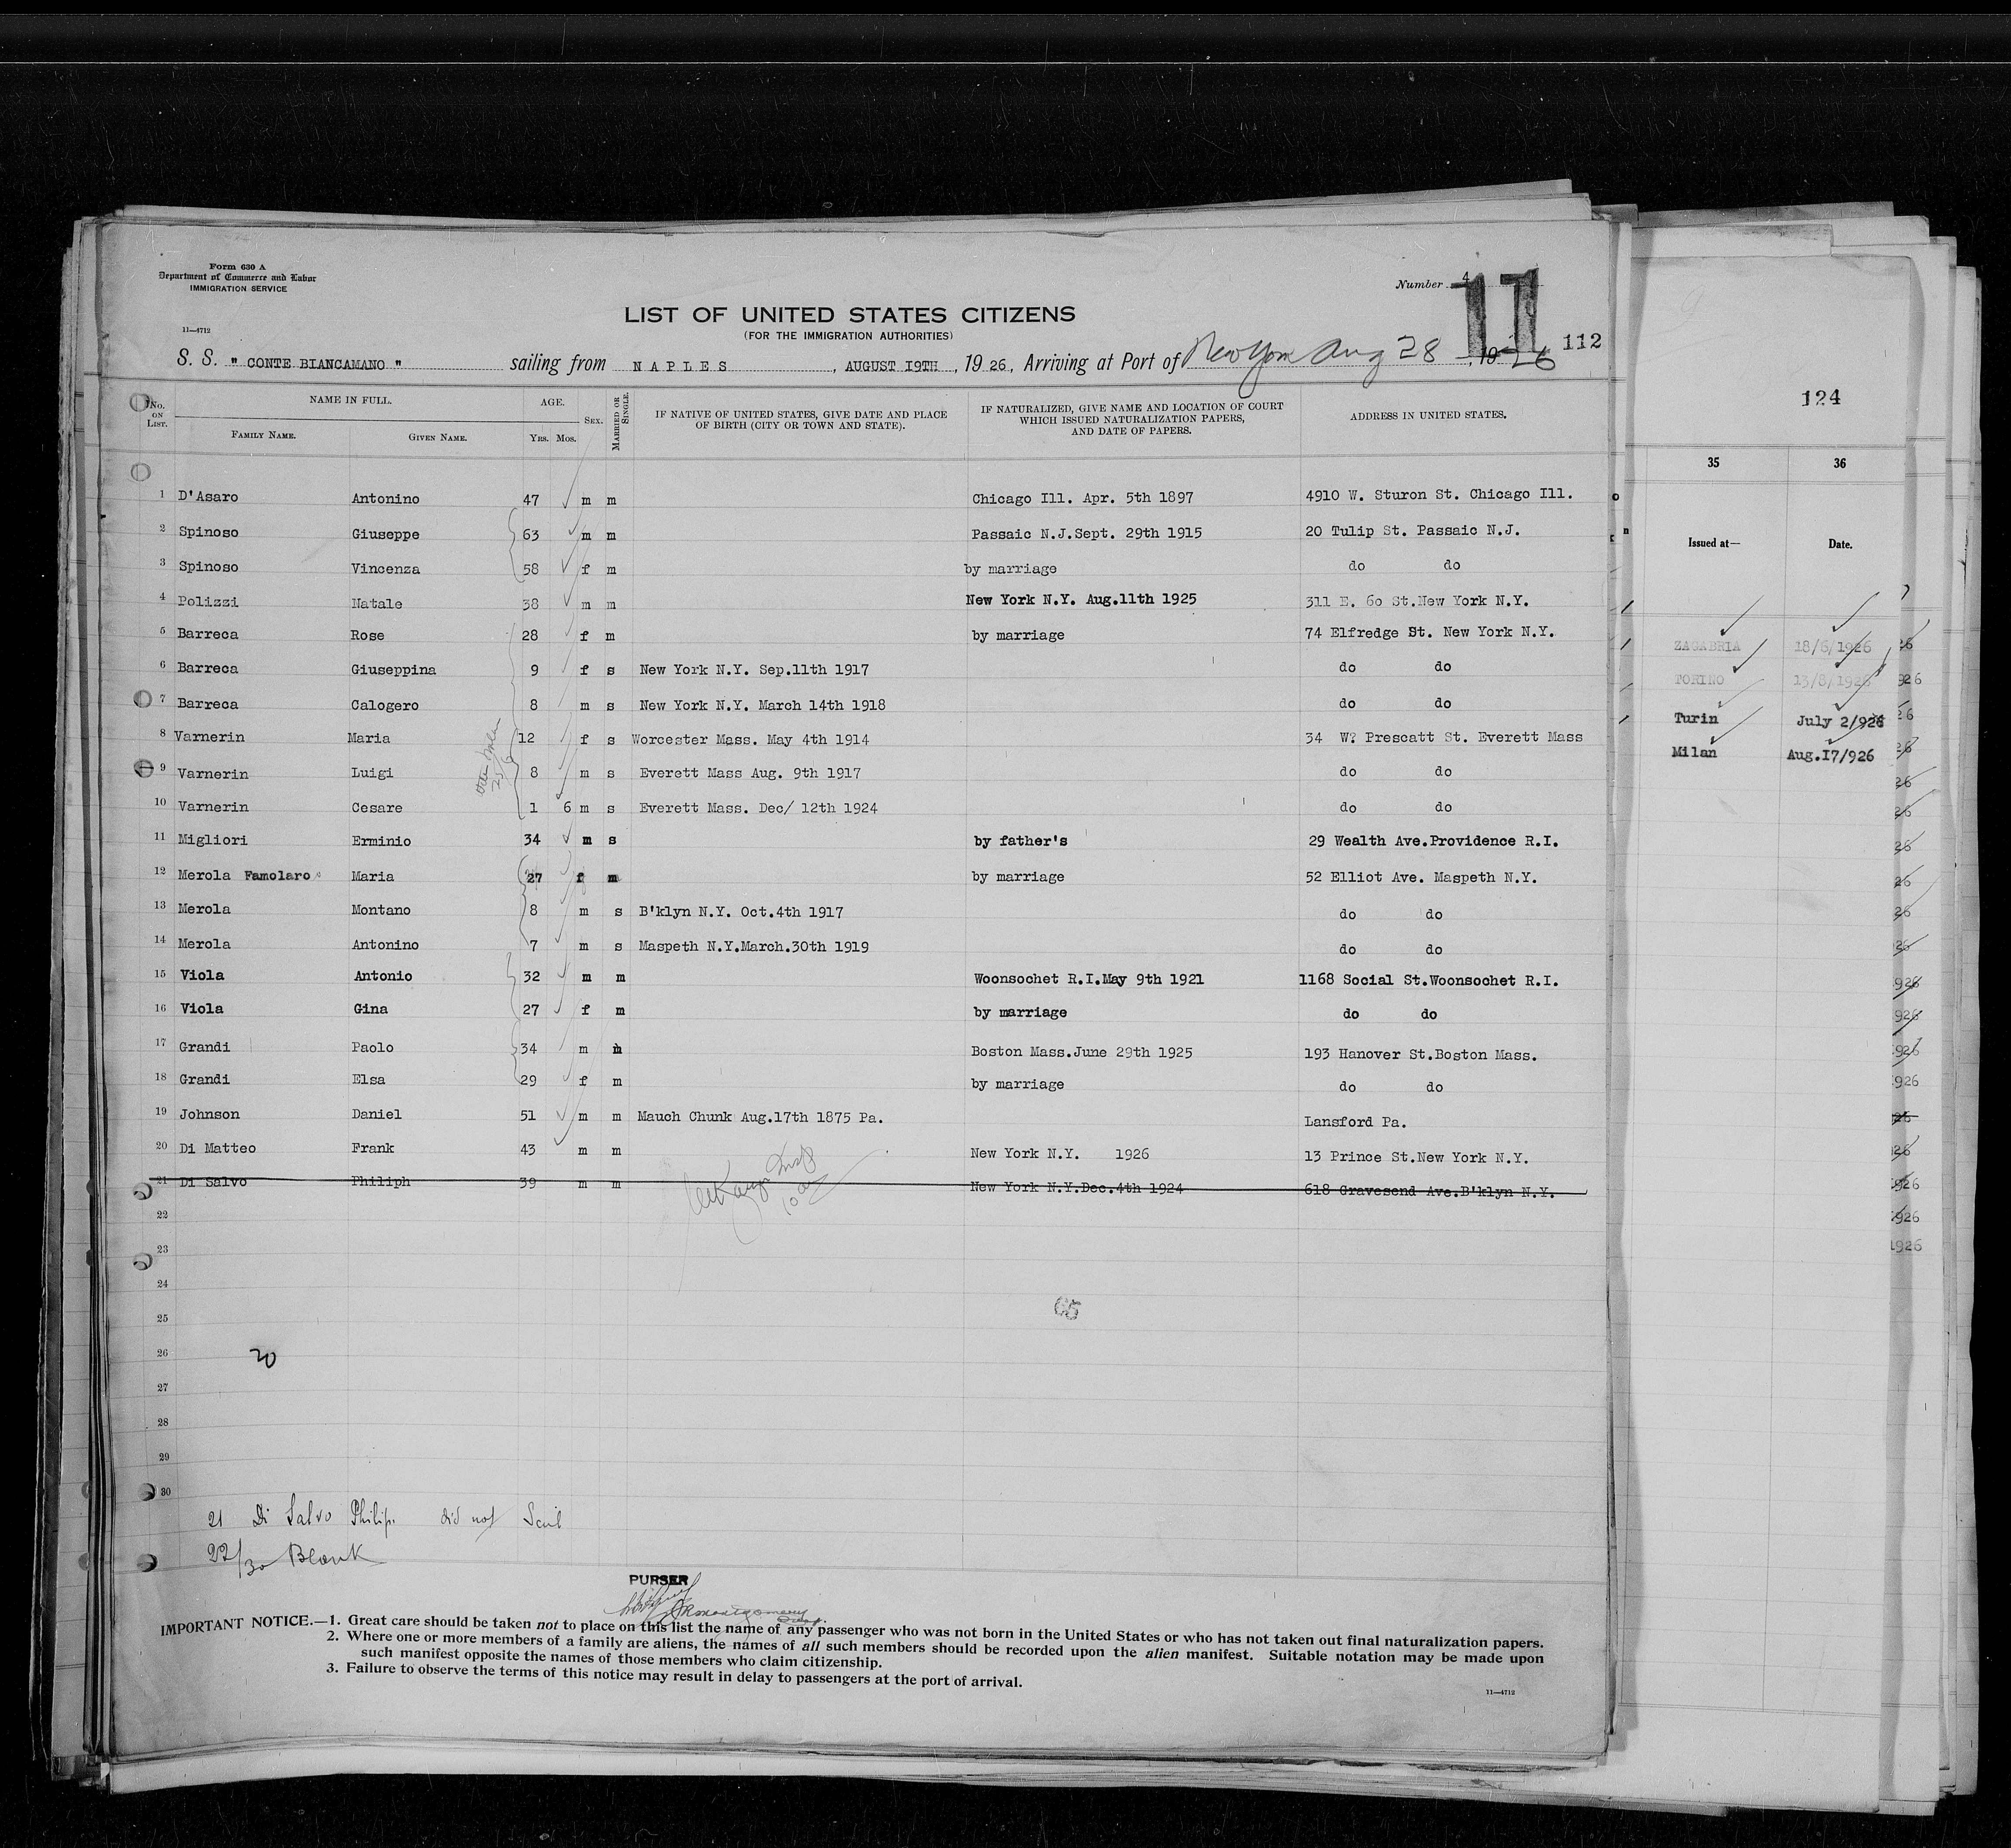 Form 630 A
Department of Commerce and Labor
IMMIGRATION SERVICE
11—4712
Number 4
11
112
LIST OF UNITED STATES CITIZENS
(FOR THE IMMIGRATION AUTHORITIES)
S. S. " CONTE BIANCAMANO " sailing from NAPLES , AUGUST 19TH , 19 26, Arriving at Port of New York Aug 28 , 1926
No. ON LIST. NAME IN FULL. FAMILY NAME. GIVEN NAME. AGE. YRS. MOS. SEX. MARRIED OR SINGLE. IF NATIVE OF UNITED STATES, GIVE DATE AND PLACE OF BIRTH (CITY OR TOWN AND STATE). IF NATURALIZED, GIVE NAME AND LOCATION OF COURT WHICH ISSUED NATURALIZATION PAPERS, AND DATE OF PAPERS. ADDRESS IN UNITED STATES.
1 D'Asaro Antonino 47 m m Chicago Ill. Apr. 5th 1897 4910 W. Sturon St. Chicago Ill.
2 Spinoso Giuseppe 63 m m Passaic N.J.Sept. 29th 1915 20 Tulip St. Passaic N.J.
3 Spinoso Vincenza 58 f m by marriage do do
4 Polizzi Natale 38 m m New York N.Y. Aug.11th 1925 311 E. 60 St.New York N.Y.
5 Barreca Rose 28 f m by marriage 74 Elfredge St. New York N.Y.
6 Barreca Giuseppina 9 f s New York N.Y. Sep.11th 1917 do do
7 Barreca Calogero 8 m s New York N.Y. March 14th 1918 do do
8 Varnerin Maria 12 f s Worcester Mass. May 4th 1914 34 W? Prescatt St. Everett Mass
9 Varnerin Luigi 8 m s Everett Mass Aug. 9th 1917 do do
10 Varnerin Cesare 1 6 m s Everett Mass. Dec/ 12th 1924 do do
11 Migliori Erminio 34 m s by father's 29 Wealth Ave.Providence R.I.
12 Merola Famolaro Maria 27 f m by marriage 52 Elliot Ave. Maspeth N.Y.
13 Merola Montano 8 m s B'klyn N.Y. Oct.4th 1917 do do
14 Merola Antonino 7 m s Maspeth N.Y.March.30th 1919 do do
15 Viola Antonio 32 m m Woonsochet R.I.May 9th 1921 1168 Social St.Woonsochet R.I.
16 Viola Gina 27 f m by marriage do do
17 Grandi Paolo 34 m m Boston Mass.June 29th 1925 193 Hanover St.Boston Mass.
18 Grandi Elsa 29 f m by marriage do do
19 Johnson Daniel 51 m m Mauch Chunk Aug.17th 1875 Pa. Lansford Pa.
20 Di Matteo Frank 43 m m New York N.Y. 1926 13 Prince St.New York N.Y.
21 Di Salvo Philiph 39 m m New York N.Y.Dec.4th 1924 618 Gravesend Ave.B'klyn N.Y.
22
23
24
25
65
26
20
27
28
29
30
21 Di Salvo Philip. did not Sail
22/30 Blank
PURSER
IMPORTANT NOTICE.—1. Great care should be taken not to place on this list the name of any passenger who was not born in the United States or who has not taken out final naturalization papers.
2. Where one or more members of a family are aliens, the names of all such members should be recorded upon the alien manifest. Suitable notation may be made upon
such manifest opposite the names of those members who claim citizenship.
3. Failure to observe the terms of this notice may result in delay to passengers at the port of arrival.
11—4712
124
35 36
Issued at— Date.
ZAGABRIA 18/6/1926
TORINO 13/8/1926
Turin July 2/926
Milan Aug.17/926